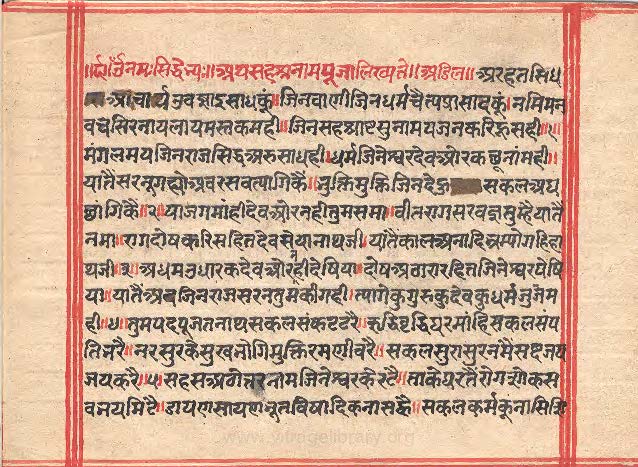 ॥र्द०॥ॐनमःसिद्धेभ्यः॥अथसहस्रनामपूजालिख्यते॥अडिल॥अरहतसिध
आचार्यउवझाइसाधकुं॥जिनवाणीजिनधर्मचैत्यप्रासादकुं॥नमिमन
वचैसिरनायलायमस्तकमही॥जिनसहस्र नामयजनकरिहुसही॥१॥
मंगलमयजिनराजसिद्धअरुसाधही॥धर्मजिनेश्वरदेवओरकछूनांमही॥
यातैसरनूगह्योअवरसवत्यागिकैं॥भुक्तिमुक्तिजिनदेहु सकलअघ
भागिकैं॥२॥याजगमांहीदेवओरनहीतुमसमा॥वीतरागसरवज्ञतुम्हैयातै
नमा॥रागदोषकरिसहितदेवसेयानाथजी॥यातैकालअनादिभ्रम्योगहिहा
थजी॥३॥अधमउधारकदेवओरहीदेषिया॥दोषअठारारहितजिनेश्वरपेषि
या॥यातैअबजिनराजसरनतुमकीगही॥त्यागेकुगुरुकुदेवकुधर्मजुजम
ही॥४॥तुमपदपूजतनाथसकलसंकटटरै॥रुद्धिवृद्धिघरमांहिसकलसंप
तिभरै॥नरसुरकेसुखभोगिमुक्तिरमणीवरै॥सकलसुरासुरनमैंसष्टजय
जयकरै॥५॥सहसअठोत्तरनामजिनेश्वरकेरटै॥ताकेघरतैंरोगओकस
वभयमिटै॥डायणसायणभूतविषादिकनासकै॥सकलकर्मकूंनासि
www.vitragelibrary.org